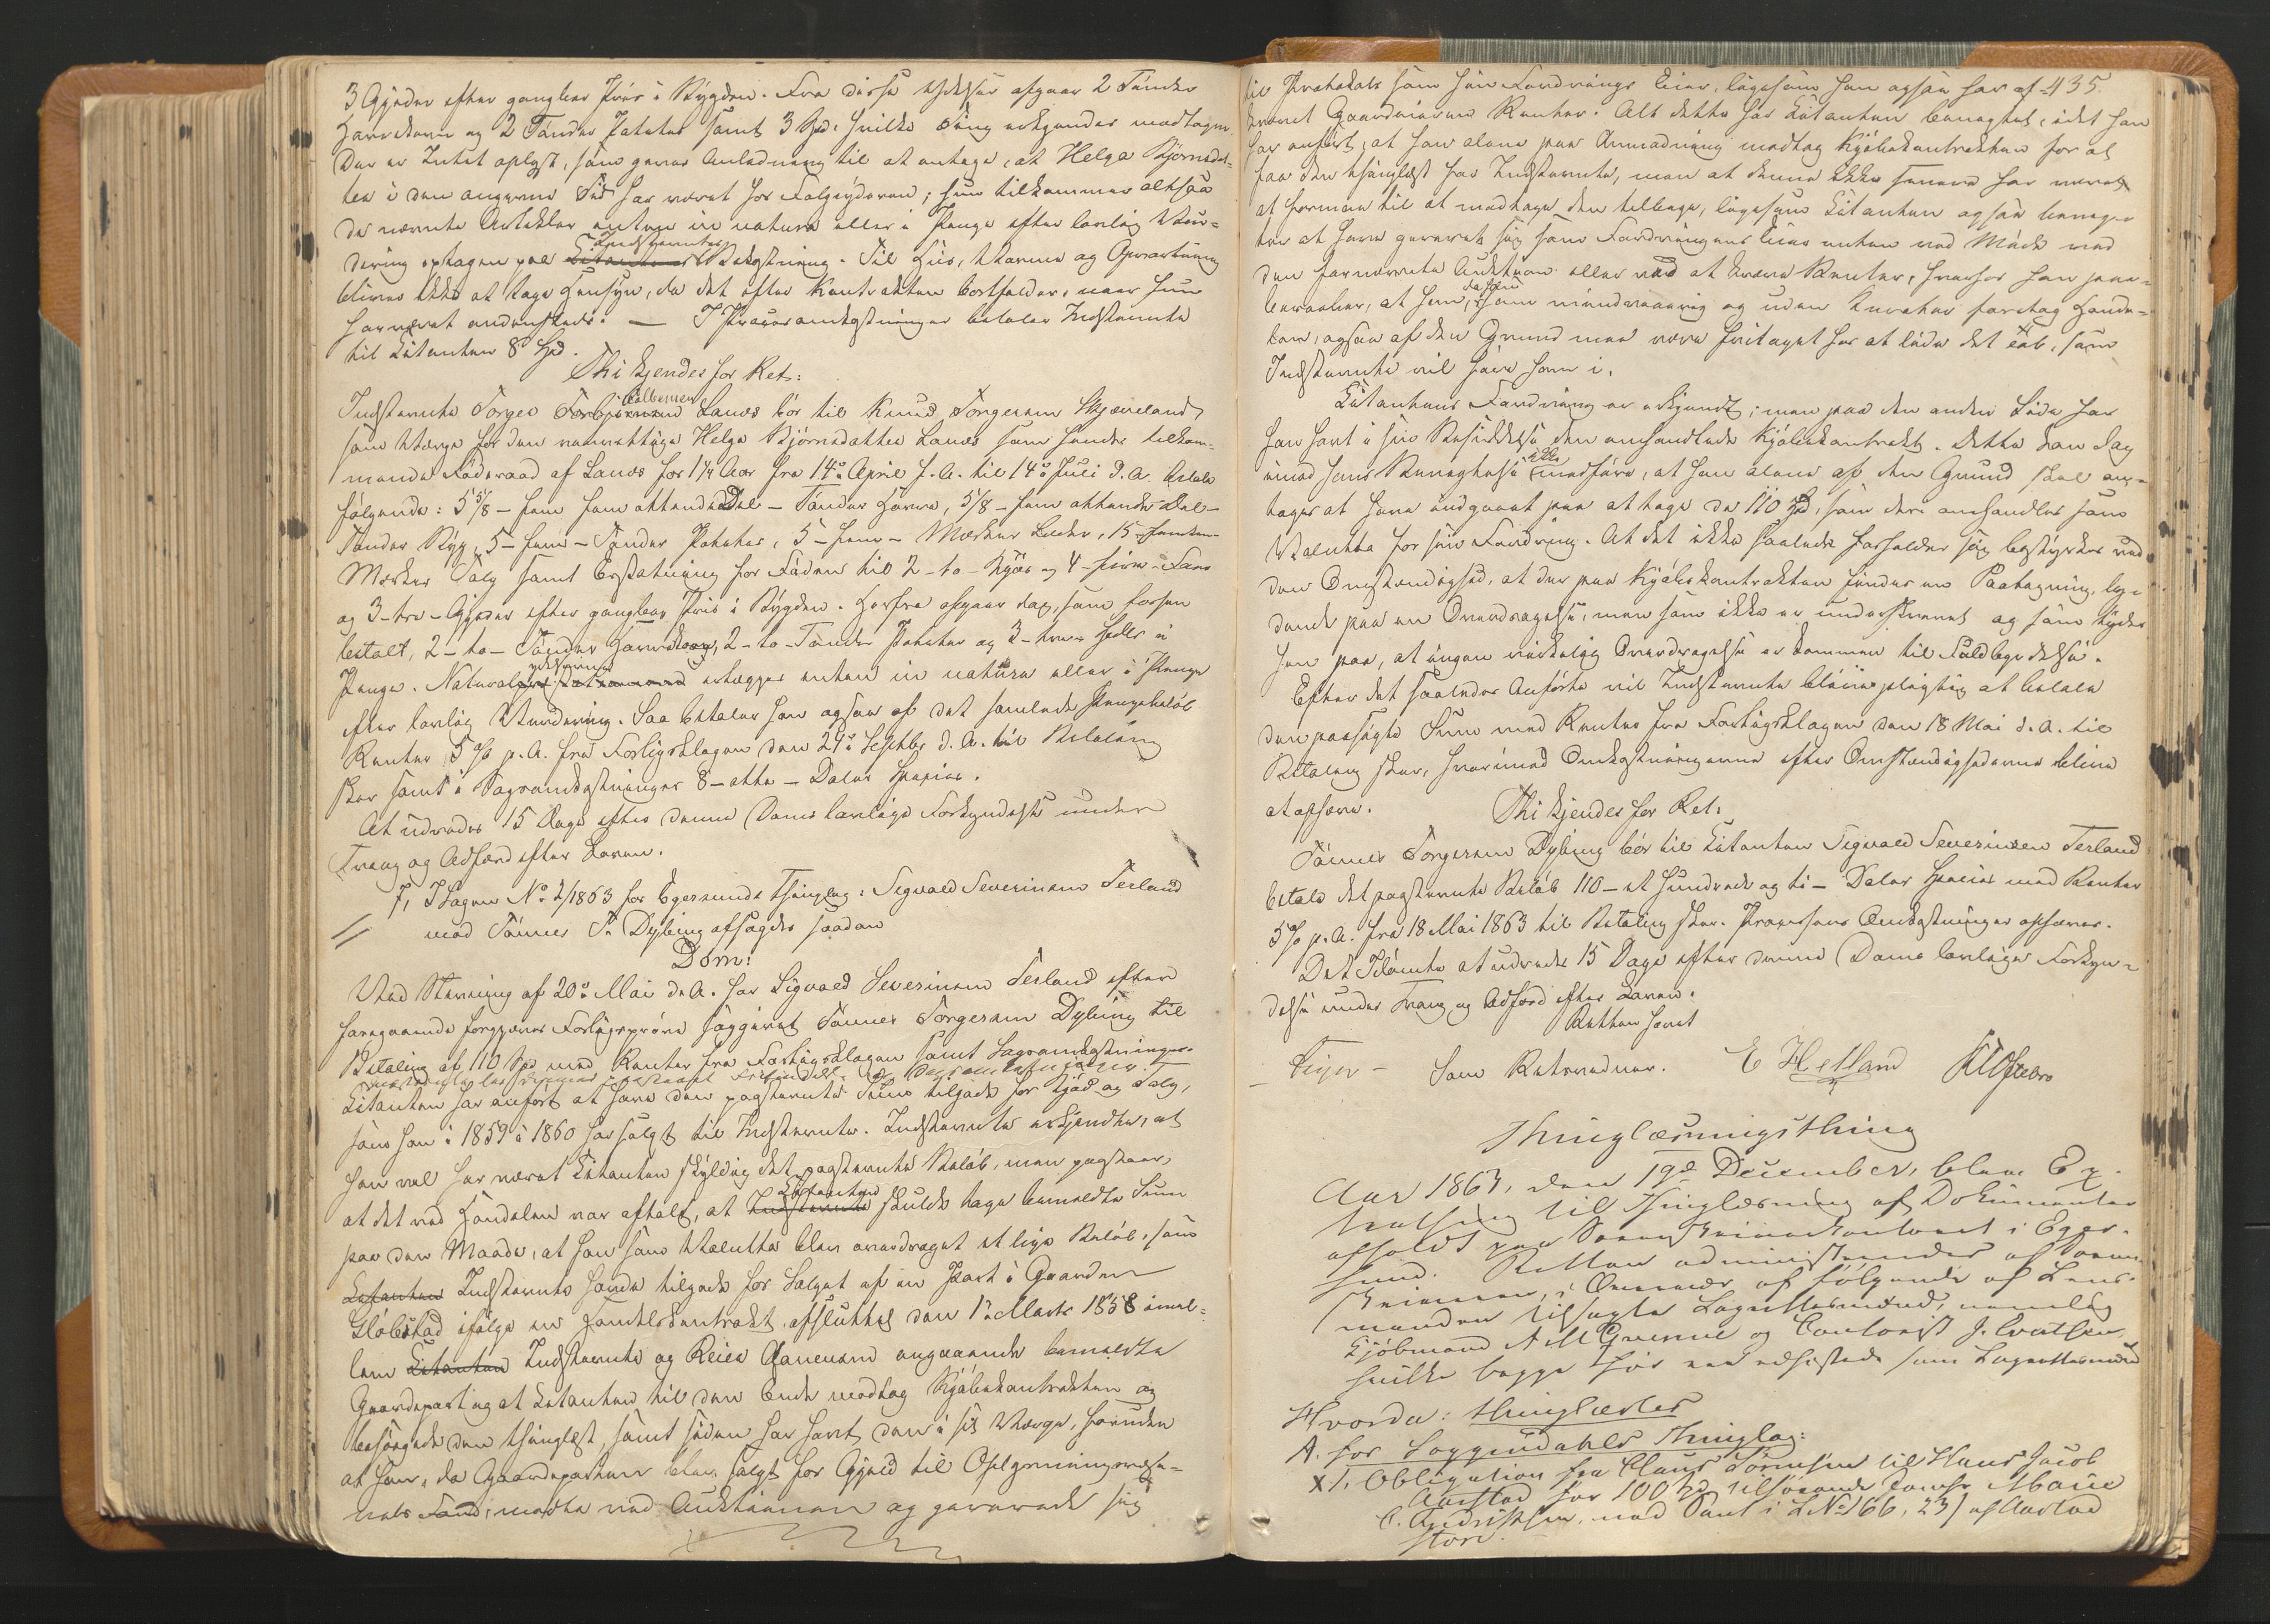 3 Gjeder efter gangbar Priis i Bygden. Fra disse Ydelser afgaar 2 Tønder
Havrekorn og 2 Tønder Potetes samt 3 Spd. hvilke Ting erkjendes modtagne.
Der er Intet oplyst, som giver Anledning til at antage, at Helga Bjørnsdat-
ter i den angivne Tid har været hos Folgeyderen; hun tilkommer altsaa
de nævnte Artikler enten in natura eller i Penge efter lovlig Vur-
dering optagen paa Indstevntes Bekostning. Til Huus, Varme og Opvartning
bliver ikke at tage Hensyn, da det efter Kontrakten bortfalder, naar hun
har været andensteds. — I Procesomkostninger betaler Indstevnte
til Citanten 8 Spd.
Thi kjendes for Ret:
Indstevnte Torger Lanes bør til Knud Torgersen Skjæveland
som Værge for den Helga Bjørnsdatter Lanes som hendes tilkom-
mende Føderaad af Lanes for 1¼ Aar fra 14de April f. A. til 14de Juli d. A. betale
følgende: 5 5/8 – fem fem ottendedeel – Tønder Havre, 5/8 – fem ottende Deel –
Tønder Byg, 5 – fem – Tønder Potetes, 5 – fem – Mærker Læder, 15 – femten –
Mærker Talg samt Erstatning for Føden til 2 – to – Kjør og 4 – fire – Faar
og 3 – tre – Gjeder efter gangbar Priis i Bygden. Herfra afgaar dog, som forhen
betalt, 2 – to – Tønder Havrekorn, 2 – to – Tønder Potetes og 3 – tre – Spdlr i
Penge. Naturalydelserne erlægges enten in natura eller i Penge
efter lovlig Vurdering. Saa betaler han ogsaa af det samlede Pengebeløb
Renter 5 % p. A. fra Forligsklagen den 24de Septbr d. A. til Betaling
skeer samt i Sagsomkostninger 8 – otte – Daler Species.
At udredes 15 Dage efter denne Doms lovlige Forkyndelse under
Tvang og Adfærd efter Loven.
7, I Sagen No 2/1863 for Egersunds Thinglag: Sigvald Severinsen Terland
mod Tønnes T. Dybing afsagdes saadan
Dom:
Ved Stevning af 20de Mai d. A. har Sigvald Severinsen Terland efter
foregaaende forgjæves Forligsprøve søggivet Tønnes Torgersen Dybing til
Betaling af 110 Spd med Renter fra Forligsklagen samt Sagsomkostninger.
Citanten har anført at have den paastevnte Sum tilgode for Kjød og Talg,
som han i 1859 à 1860 har solgt til Indstevnte. Indstevnte erkjendte, at
han vel har været Citanten skyldig det paastevnte Beløb, men paastaar,
at det ved Handelen var aftalt, at Citanten skulde tage bemeldte Sum
paa den Maade, at han som Valutta blev overdraget et lige Beløb, som
Citanten Indstevnte havde tilgode for Salget af en Part i Gaarden
Sløbstad ifølge en Handelskontrakt, afsluttet den 1de Marts 1858 imel-
lem Citanten Indstevnte og Reier angaaende bemeldte
Gaardepart og at Citanten til den Ende modtog Kjøbekontrakten og
besørgede den thinglæst, samt siden har havt den i sit Værge, foruden
at han, da Gaardeparten blev solgt for Gjæld til Oplysningsvæse-
nets Fond, mødte ved Auktionen og gererede sig
til Protokols som sin Fordrings Eier, ligesom han ogsaa har af- 435.
krævet Gaardeieren Renter. Alt dette har Citanten benægtet, idet han
har anført, at han alene paa Anmodning modtog Kjøbekontrakten for at
faa den thinglæst for Indstevnte, men at denne ikke senere har været
at formaa til at modtage den tilbage, ligesom Citanten ogsaa benæg-
ter at have gereret sig som Fordringens Eier enten ved Møde ved
den fornævnte Auktion eller ved at kræve Renter, hvorfor han paa-
beraaber, at han, da han som mindreaarig og uden Curator foretog Hande-
len, ogsaa af den Grund maa være fritaget for at lide det Tab, som
Indstevnte vil føre ham i.
Citantens Fordring er erkjendt; men paa den anden Side har
han havt i sin Besiddelse den omhandlede Kjøbekontrakt. Dette kan dog
imod hans Benægtelse ikke medføre, at han alene af den Grund skal an-
tages at have indgaaet paa at tage de 110 Spd, som deri omhandles som
Valutta for sin Fordring. At det ikke saaledes forholder sig bestyrkes ved
den Omstændighed, at der paa Kjøbekontrakten findes en Paategning, ly-
dende paa en Overdragelse, men som ikke er underskrevet og som tyder
hen paa, at ingen virkelig Overdragelse er kommen til Fuldbyrdelse.
Efter det saaledes Anførte vil Indstevnte blive pligtig at betale
den paasøgte Sum med Renter fra Forligsklagen den 18 Mai d. A. til
Betaling skeer, hvorimod Omkostningerne efter Omstændighederne blive
at ophæve.
Thi kjendes for Ret:
Tønnes Torgersen Dybing bør til Citanten Sigvald Severinsen Terland
betale det paastevnte Beløb 110 – et Hundrede og ti – Daler Species med Renter
5 % p. A. fra 18 Mai 1863 til Betaling skeer. Processens Omkostninger ophæves.
Det Idømte at udredes 15 Dage efter denne Doms lovlige Forkyn-
delse under Tvang og Adfærd efter Loven.
Retten hævet
– Feyer – Som Retsvidner. E Hetland
Thinglæsningsthing
Aar 1863, den 19de December, blev Ex-
trathing til Thinglæsning af Dokumenter
afholdt paa Sorenskriverkontoret i Eger-
sund. Retten administreredes af Soren-
skriveren, i Overvær af følgende af Lens-
manden tilsagte Laugrettesmænd, nemlig
Kjøbmand A M Grenne og Contorist J. Evertsen,
hvilke begge som Laugrettesmænd
Hvorda: thinglæstes
A. for Soggendahls Thinglag:
x 1, Obligation fra Claus Tønnesen til Hans Jacob
Aarstad for 100 Spd tilhørende Jomfr Marie
C. Andersen, med Pant i L No 166, 23) af Aarstad
store.